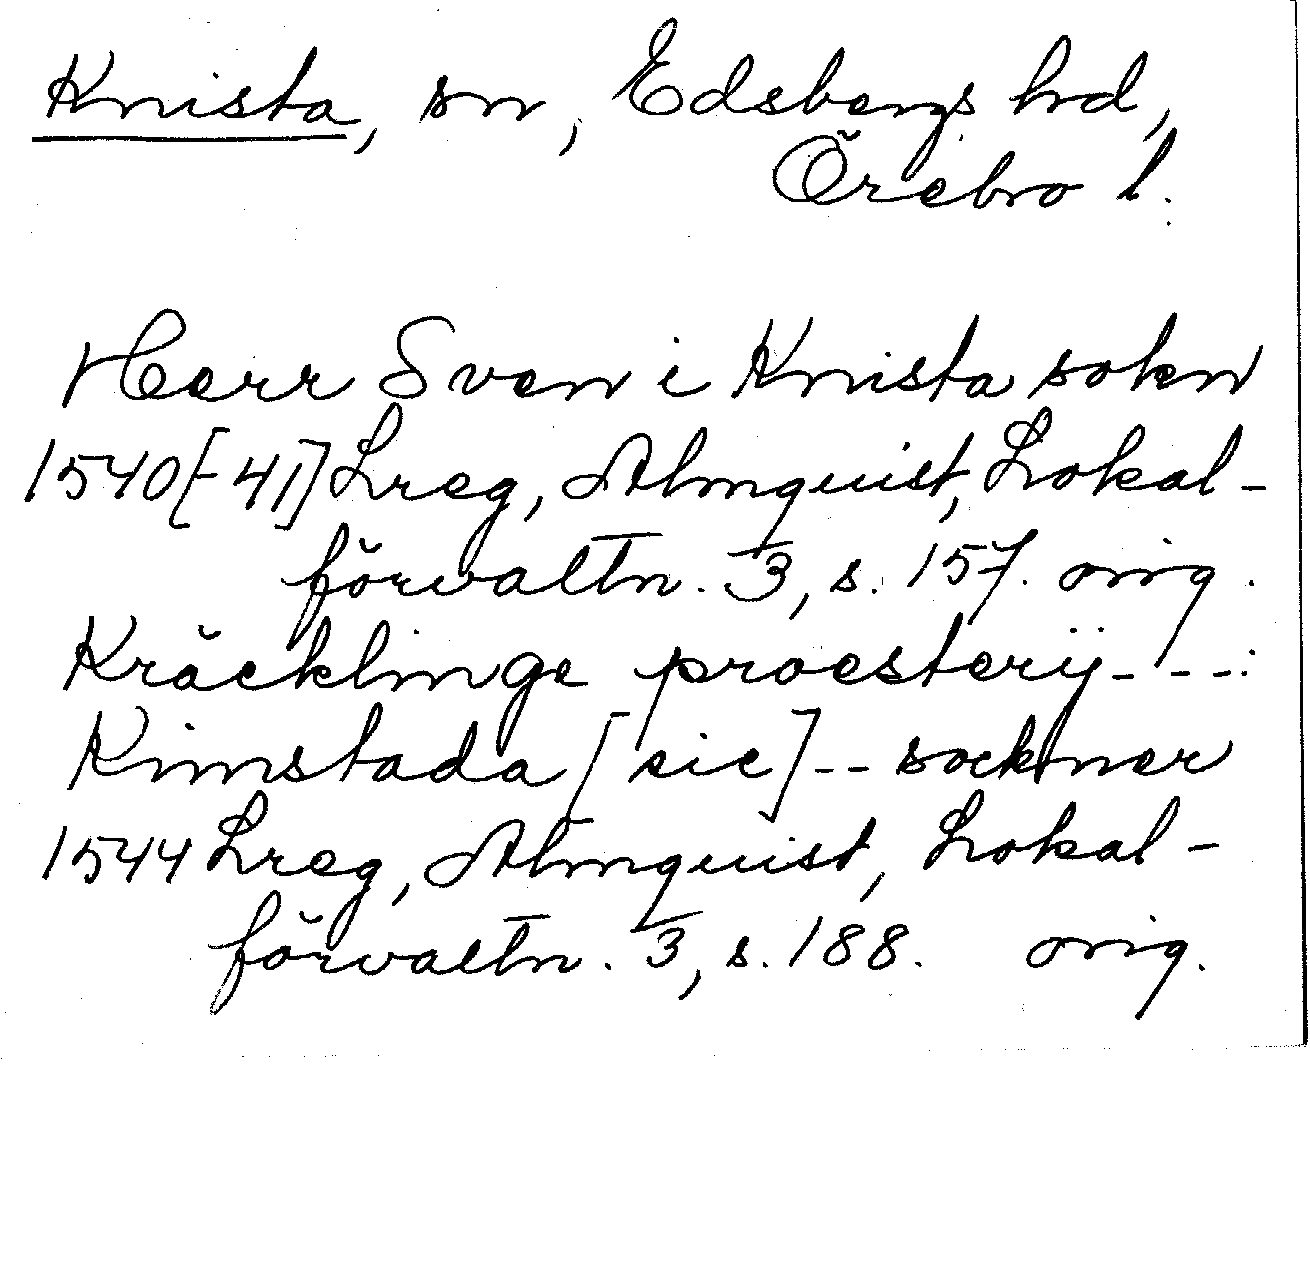 Knista, sn, Edsbergs hrd,
Örebro l.
Herr Sven i Knista sokn
1540[-41] Lreg, Almquist, Lokal-
förvaltn. 3, s. 157. orig.
Kräcklinge proesterij---:
Kimstada [sic]-- socknner
1544 Lreg, Almquist, Lokal-
förvaltn. 3, s. 188. orig.